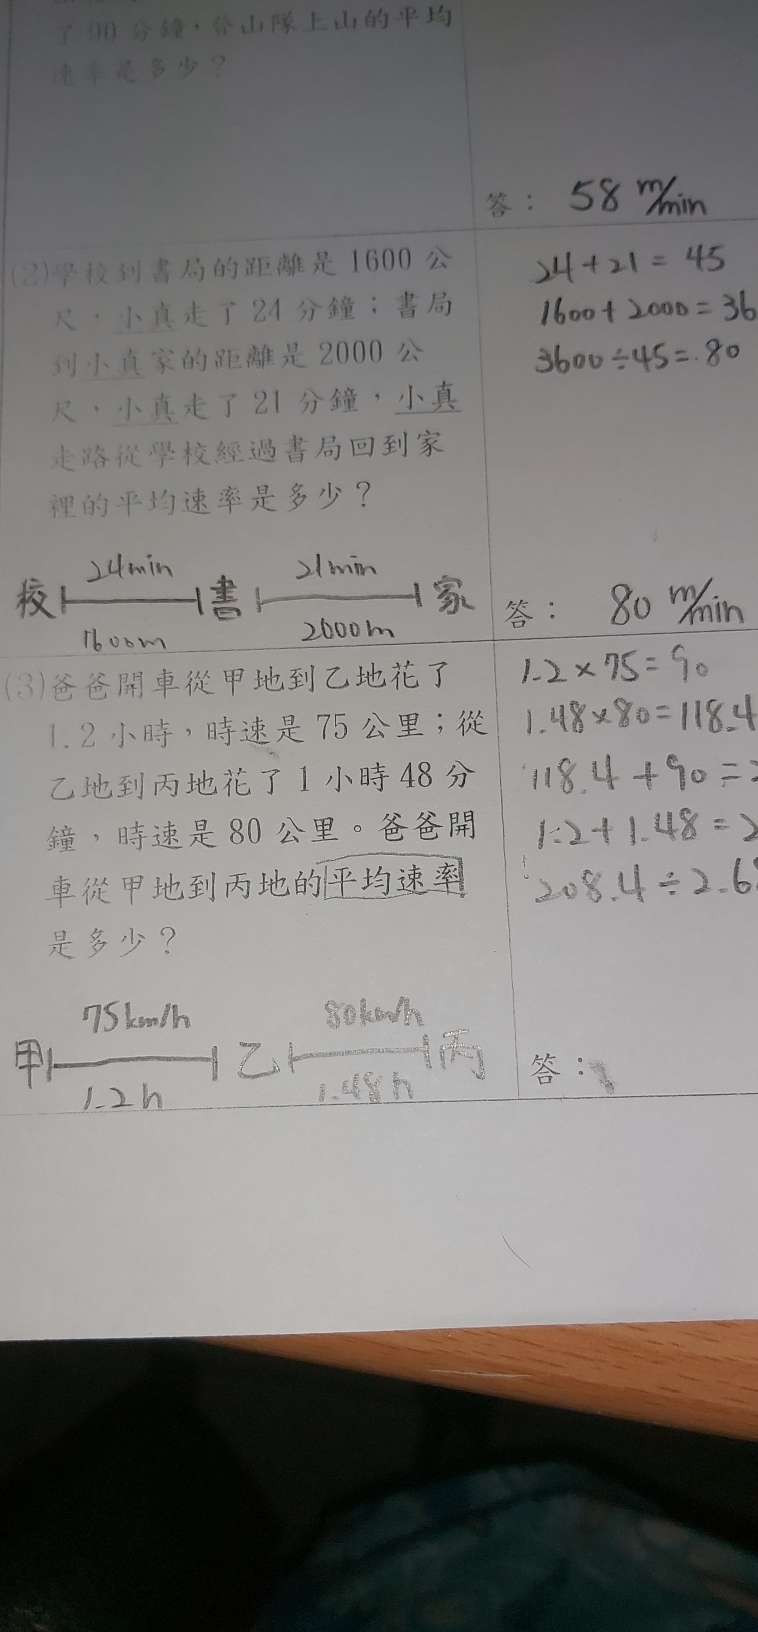 了90分鐘，登山隊上山的平均
速率是多少？
答： 58 m/min
(2)學校到書局的距離是 1600 公
尺，小真走了 24 分鐘；書局
到小真家的距離是 2000 公
尺，小真走了 21 分鐘，小真
走路從學校經過書局回到家
裡的平均速率是多少？
24+21=45
1600+2000=36
3600÷45=80
24min 21min
校 書 家
1600m 2000m
答： 80 m/min
(3)爸爸開車從甲地到乙地花了
1.2 小時，時速是 75 公里；從
乙地到丙地花了 1 小時 48 分
鐘，時速是 80 公里。爸爸開
車從甲地到丙地的平均速率
是多少？
1.2×75=90
1.48×80=118.4
118.4+90=2
1.2+1.48=2
208.4÷2.68
75km/h 80km/h
甲 乙 丙
1.2h 1.48h
答：